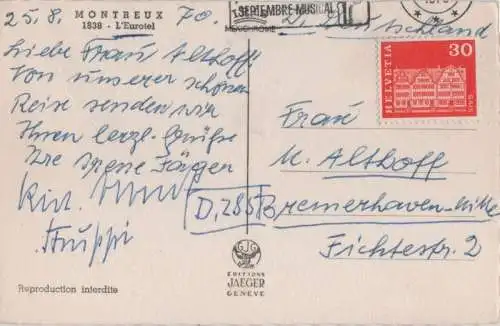 MONTREUX
1838 - L'Eurotel
25.8. 70.
Liebe Frau Althoff!
Von unserer schönen
Reise senden wir
Ihnen herzl. Grüße
Ihre Irene Jäger
SEPTEMBRE MUSICAL
Deutschland
HELVETIA
30
GAIS
Frau
M. Althoff
D, 285 Bremerhaven-Mitte
Fichtestr. 2
EDITIONS
JAEGER
GENÈVE
Reproduction interdite